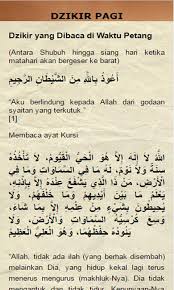 DZIKIR PAGI
Dzikir yang Dibaca di Waktu Petang
(Antara Shubuh hingga siang hari ketika
matahari akan bergeser ke barat)
أَعُوذُ بِاللَّهِ مِنَ الشَّيْطَانِ الرَّجِيْمِ
“Aku berlindung kepada Allah dari godaan
syaitan yang terkutuk.”
[1]
Membaca ayat Kursi
اللَّهُ لَا إِلَهَ إِلَّا هُوَ الْحَيُّ الْقَيُّومُ، لَا تَأْخُذُهُ
سِنَةٌ وَلَا نَوْمٌ، لَهُ مَا فِي السَّمَاوَاتِ وَمَا فِي
الْأَرْضِ، مَنْ ذَا الَّذِي يَشْفَعُ عِنْدَهُ إِلَّا بِإِذْنِهِ،
يَعْلَمُ مَا بَيْنَ أَيْدِيهِمْ وَمَا خَلْفَهُمْ، وَلَا
يُحِيطُونَ بِشَيْءٍ مِنْ عِلْمِهِ إِلَّا بِمَا شَاءَ،
وَسِعَ كُرْسِيُّهُ السَّمَاوَاتِ وَالْأَرْضَ، وَلَا
يَئُودُهُ حِفْظُهُمَا، وَهُوَ الْعَلِيُّ الْعَظِيمُ
“Allah, tidak ada ilah (yang berhak disembah)
melainkan Dia, yang hidup kekal lagi terus
menerus mengurus (makhluk-Nya). Dia tidak
mengantuk dan tidak tidur. Kepunyaan-Nya